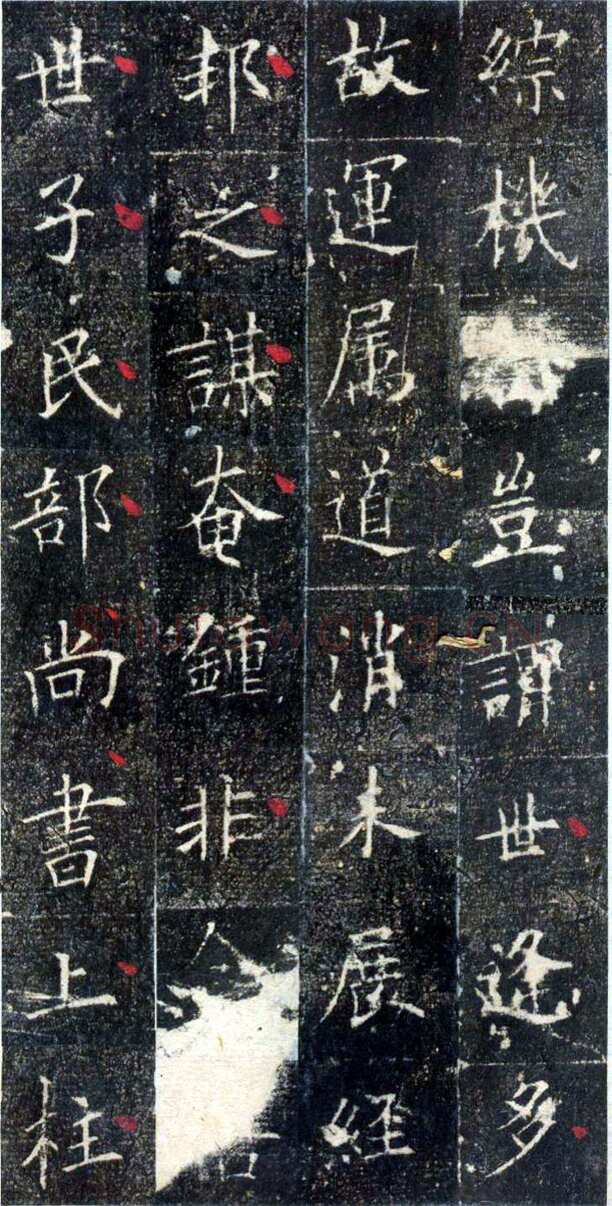 綜機豈謂世逢多
故運属道消未展經
邦之謀奄鍾非
世子民部尚書上柱